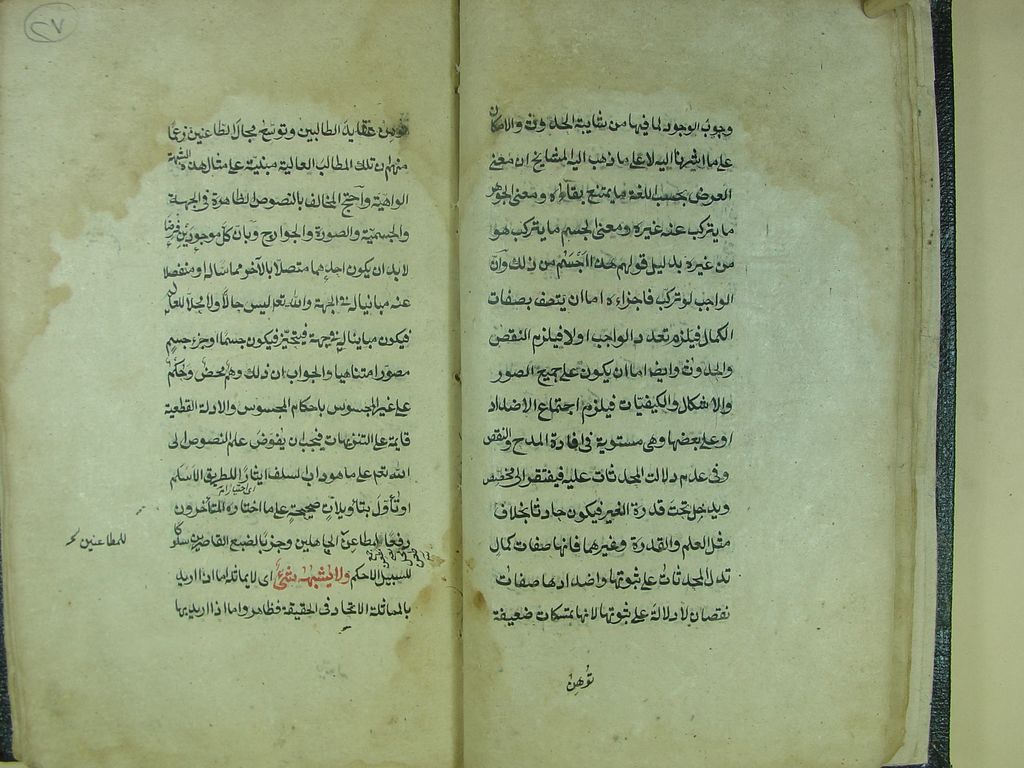 وجوب الوجود لما فيها من شايبة الحدوث والامكان
على ما اشرنا اليه لا على ما ذهب اليه المشايخ ان معنى
العرض بحسب اللغة ما يمتنع بقاؤه ومعنى الجوهر
ما يتركب عنه غيره ومعنى الجسم ما يتركب هو
من غيره بدليل قولهم هذا اجسم من ذلك وان
الواجب لو تركب فاجزاءه اما ان يتصف بصفات
الكمال فيلزم تعدد الواجب اولا فيلزم النقص
والحدوث وايضا اما ان يكون على جميع الصور
والاشكال والكيفيات فيلزم اجتماع الاضداد
او على بعضها وهى مستوية فى افادة المدح والنقص
وفى عدم دلالت المحدثات عليه فيفتقر الى مخصص
ويدخل تحت قدرة الغير فيكون حادثا بخلاف
مثل العلم والقدرة وغيرهما فانها صفات كمال
تدل المحدثات على ثبوتها واضدادها صفات
نقصان لا دلالة على ثبوتها لانها تمسكات ضعيفة
توهن
٢٧
توهن عقايد الطالبين وتوسع مجال الطاعنين زعما
منهم ان تلك المطالب العالية مبنية على مثال هذه الشبهة
الواهية واحتج المخالف بالنصوص الظاهرة فى الجهة
والجسمية والصورة والجوارح وبان كل موجودين فرضا
لا بد ان يكون احدهما متصلا بالآخر مماسا له او منفصلا
عنه مباينا له فى الجهة والله تعم ليس حالا ولا محلا للعالم
فيكون مباينا له فى جهة فيتحيز فيكون جسما او جزء جسم
مصورا متناهيا والجواب ان ذلك وهم محض وحكم
على غير المحسوس باحكام المحسوس والادلة القطعية
قايمة على التنزيهات فيجب ان يفوض علم النصوص الى
الله تعم على ما هو داب السلف ايثارا للطريق الاسلم
او تأول بتأويلات صحيحة على ما اختاره المتأخرون
دفعا لمطاعن الجاهلين وجذبا لضبع القاصرين سلوكا
للمطاعنين
للسبيل الاحكم ولا يشبهه شئ اى لا يماثله اما اذا اريد
بالمماثلة الاتحاد فى الحقيقة فظاهر واما اذا اريد بها